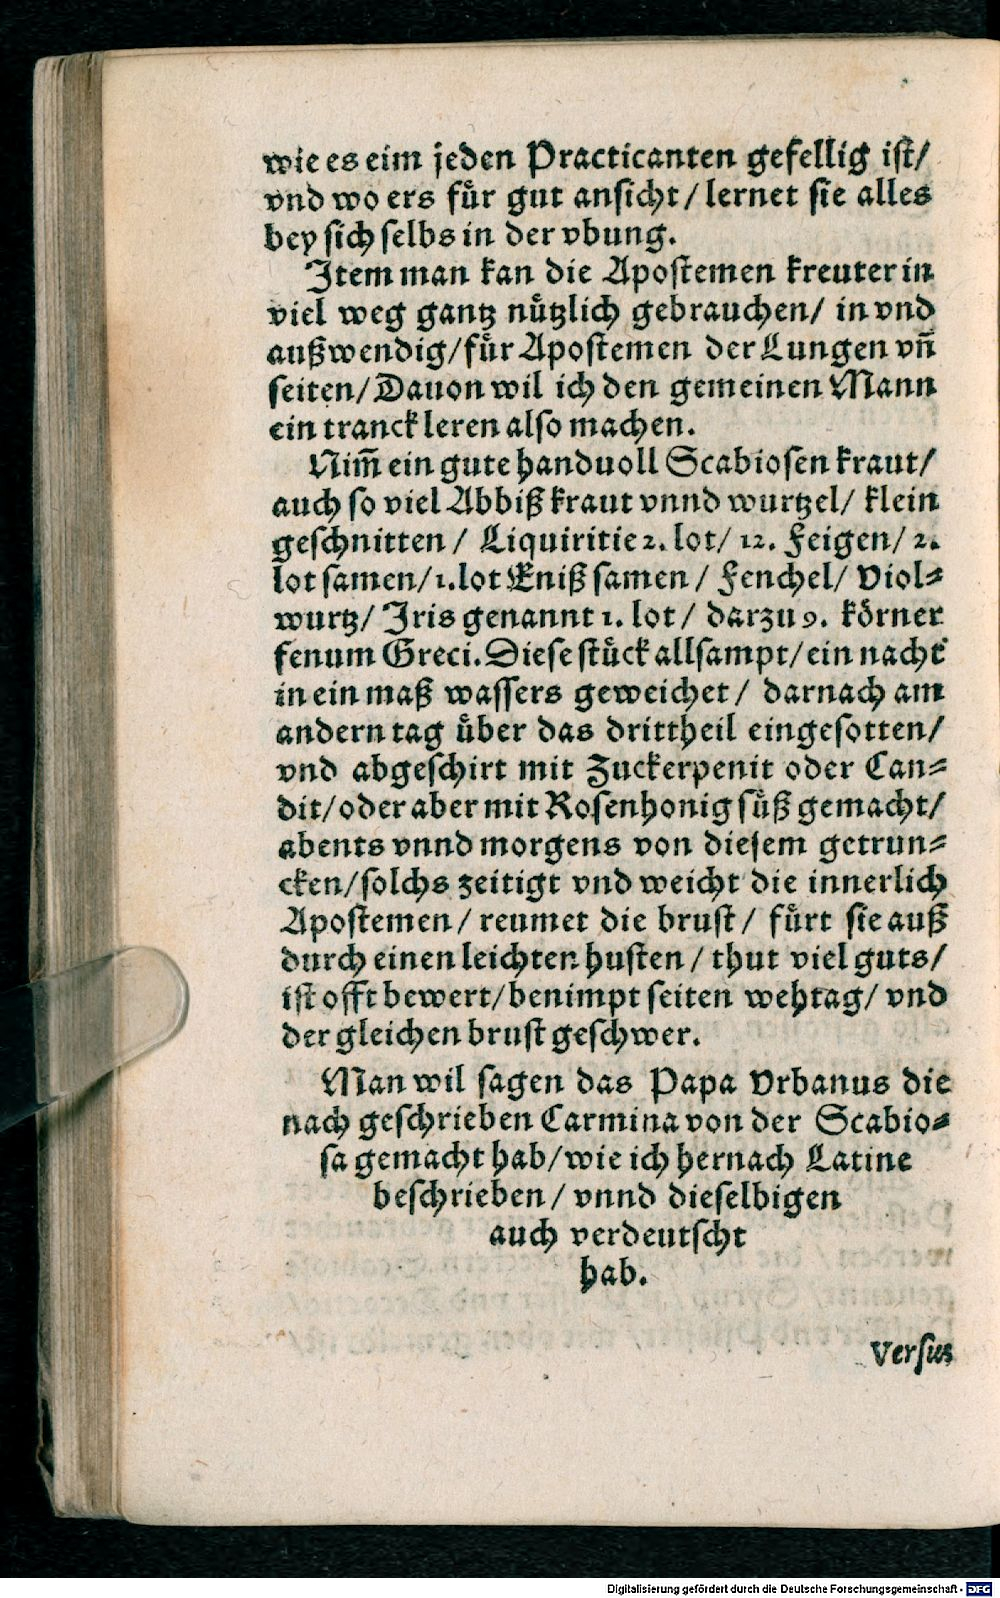 wie es eim jeden Practicanten gefellig ist/
vnd wo ers fuͤr gut ansicht/ lernet sie alles
bey sich selbs in der vbung.
Item man kan die Apostemen kreuter in
viel weg gantz nuͤtzlich gebrauchen/ in vnd
außwendig/ fuͤr Apostemen der Lungen vñ
seiten/ Dauon wil ich den gemeinen Mann
ein tranck leren also machen.
Nim̄ ein gute handuoll Scabiosen kraut/
auch so viel Abbiß kraut vnnd wurtzel/ klein
geschnitten/ Liquiritie 2. lot/ 12. Feigen/ 2.
lot samen/ 1. lot Eniß samen/ Fenchel/ Viol⸗
wurtz/ Iris genannt 1. lot/ darzu 9. koͤrner
fenum Greci. Diese stuͤck allsampt/ ein nacht
in ein maß wassers geweichet/ darnach am
andern tag uͤber das drittheil eingesotten/
vnd abgeschirt mit Zuckerpenit oder Can⸗
dit/ oder aber mit Rosenhonig suͤß gemacht/
abents vnnd morgens von diesem getrun⸗
cken/ solchs zeitigt vnd weicht die innerlich
Apostemen/ reumet die brust/ fuͤrt sie auß
durch einen leichten husten/ thut viel guts/
ist offt bewert/ benimpt seiten wehtag/ vnd
der gleichen brust geschwer.
Man wil sagen das Papa Vrbanus die
nach geschrieben Carmina von der Scabio⸗
sa gemacht hab/ wie ich hernach Latine
beschrieben/ vnnd dieselbigen
auch verdeutscht
hab.
Versus
Digitalisierung gefördert durch die Deutsche Forschungsgemeinschaft - DFG